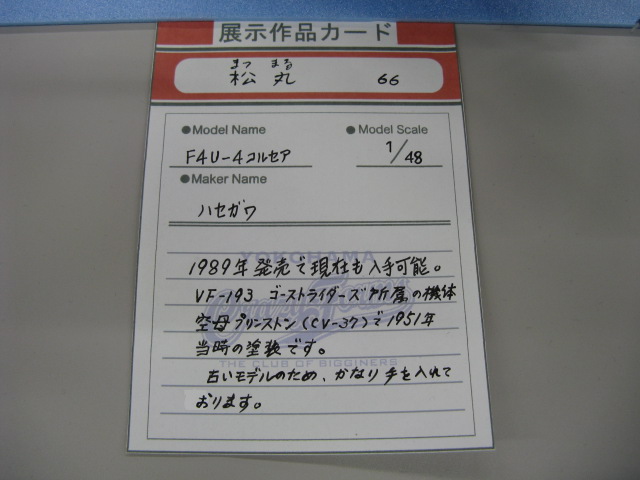 展示作品カード
まつ まる
松丸 66
●Model Name ●Model Scale
F4U-4コルセア 1/48
●Maker Name
ハセガワ
YOKOHAMA
1989年発売で現在も入手可能。
VF-193 ゴーストライダーズ所属の機体
空母プリンストン(CV-37)で1951年
当時の塗装です。
THE CLUB OF BIGGINERS
古いモデルのため、かなり手を入れて
おります。